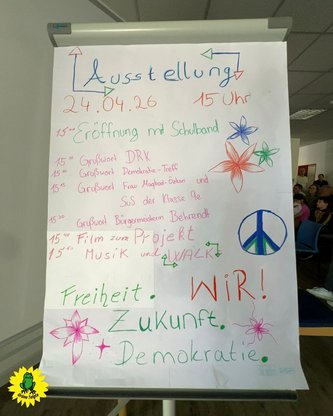 Ausstellung
24.04.26 15 Uhr
15⁰⁰ Eröffnung mit Schulband
Grußwort DRK
Grußwort Demokratie-Treff
15¹⁵ Grußwort Frau und
SuS der Klasse 9e
15³⁰ Grußwort Bürgermeisterin Behrendt
Film zum Projekt
Musik und WALK
Freiheit. WiR!
Zukunft.
Demokratie.